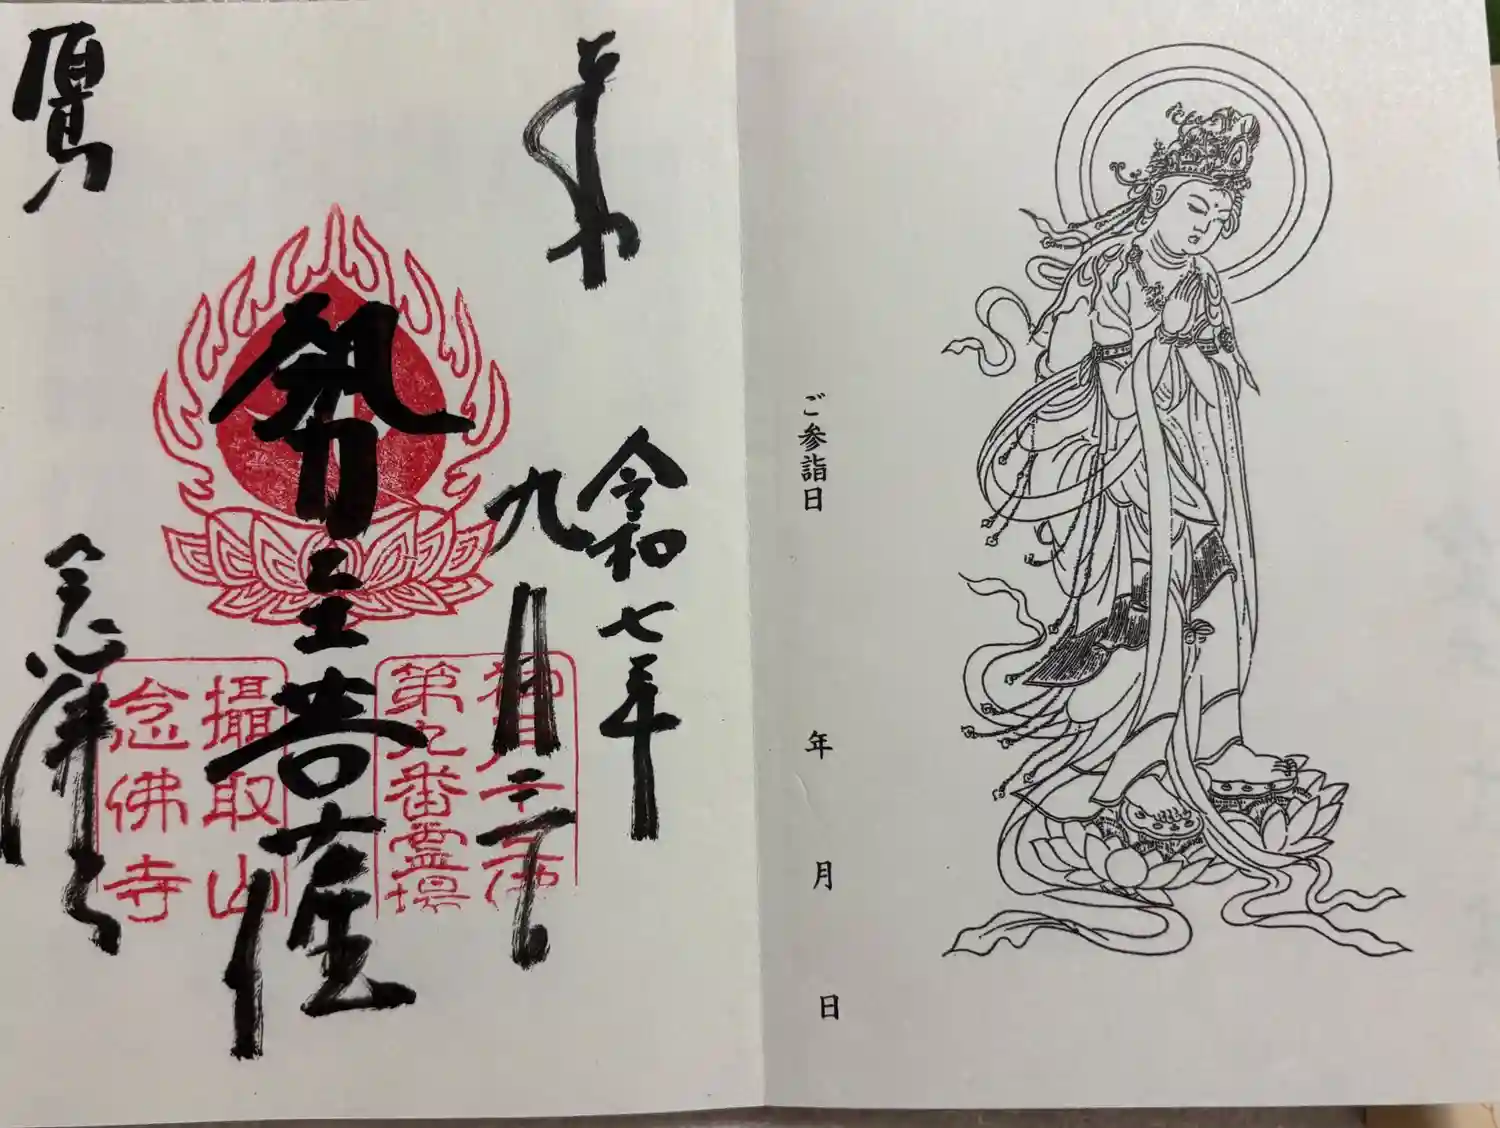 ご参詣日　年　月　日
奉拝
令和七年
九月二日
勢至菩薩
有馬
念佛寺
神戸十三佛
第九番霊場
攝取山
念佛寺